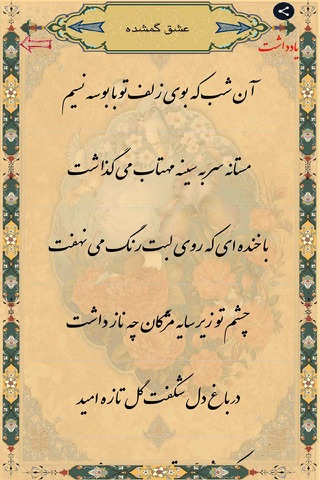 عشق گمشده
یادداشت
آن شب که بوی زلف تو با بوسه نسیم
مستانه سر به سینه مهتاب می گذاشت
با خنده ای که روی لبت رنگ می نهفت
چشم تو زیر سایه مژگان چه ناز داشت
در باغ دل شکفت گل تازه امید